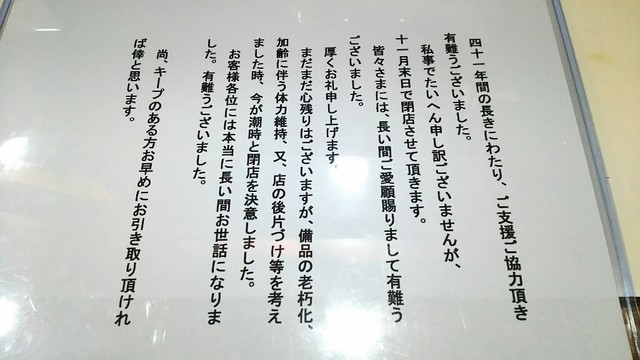 四十一年間の長きにわたり、ご支援ご協力頂き
有難うございました。
私事でたいへん申し訳ございませんが、
十一月末日で閉店させて頂きます。
皆々さまには、長い間ご愛顧賜りまして有難う
ございました。
厚くお礼申し上げます。
まだまだ心残りはございますが、備品の老朽化、
加齢に伴う体力維持、又、店の後片づけ等を考え
ました時、今が潮時と閉店を決意しました。
お客様各位には本当に長い間お世話になりま
した。有難うございました。
尚、キープのある方お早めにお引き取り頂けれ
ば倖と思います。